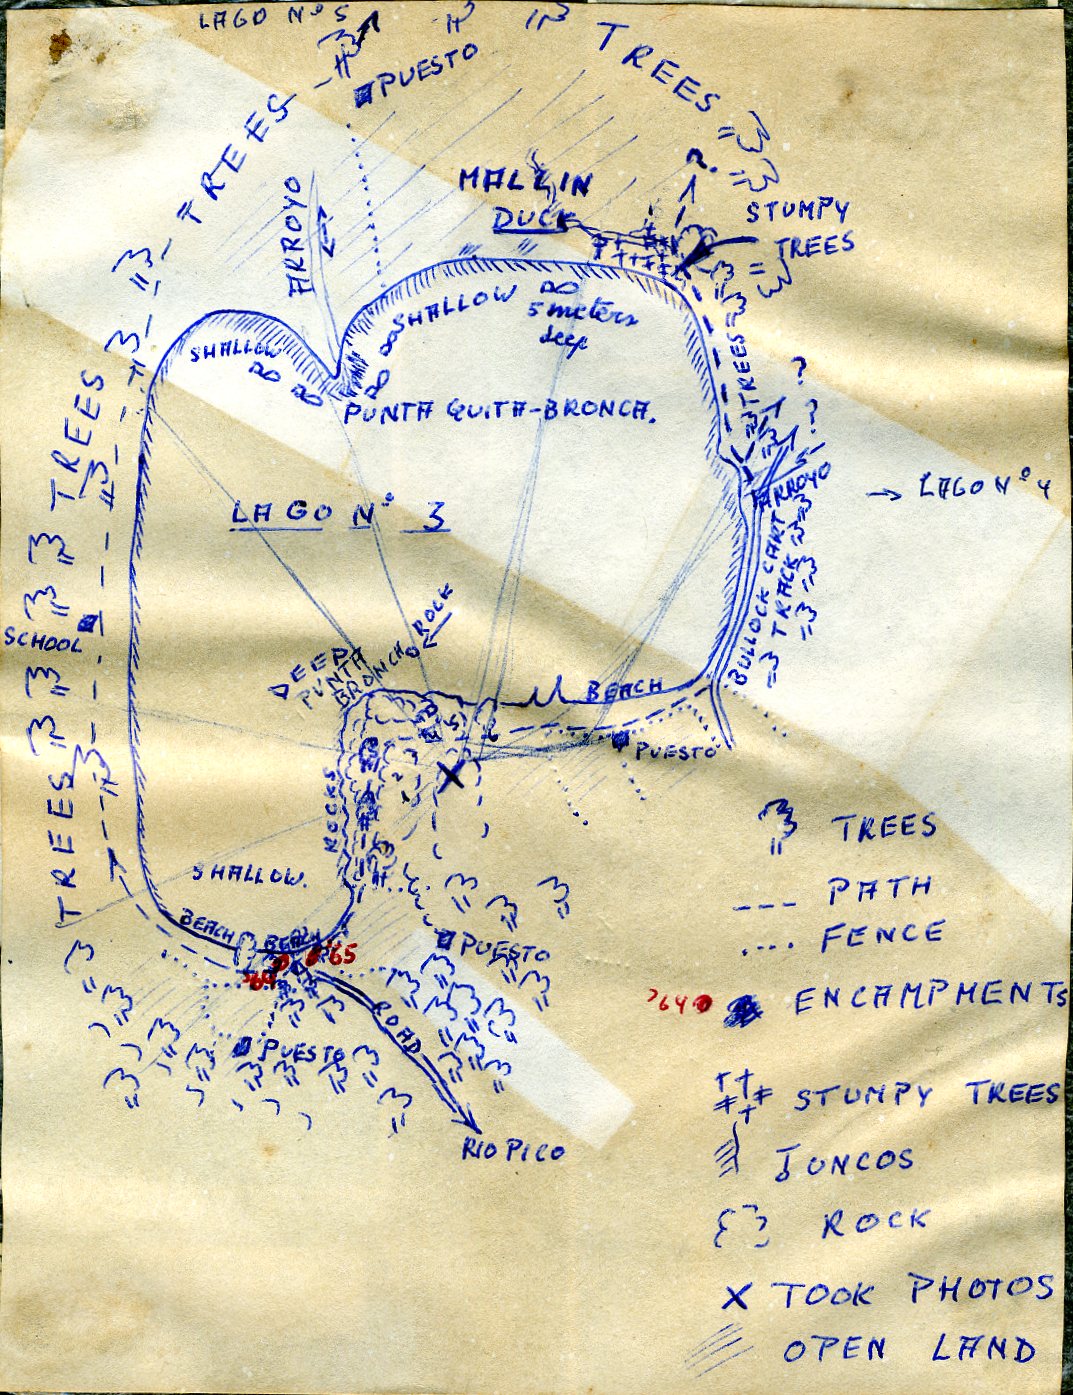 LAGO Nº 5
TREES
PUESTO
TREES
MALLIN
DUCK
?
STUMPY
TREES
ARROYO
SHALLOW
5 meters
deep
SHALLOW
TREES
?
?
PUNTA QUITA-BRONCA.
TREES
LAGO Nº 3
ARROYO
→ LAGO Nº 4
BULLOCK CART
TRACK
ROCK
SCHOOL
DEEP
PUNTA
BRONCA
BEACH
PUESTO
ROCKS
TREES
SHALLOW.
BEACH
BEACH
'64
'65
PUESTO
ROAD
PUESTO
RIO PICO
TREES
PATH
FENCE
'64
ENCAMPMENTS
STUMPY TREES
JUNCOS
ROCK
X TOOK PHOTOS
OPEN LAND